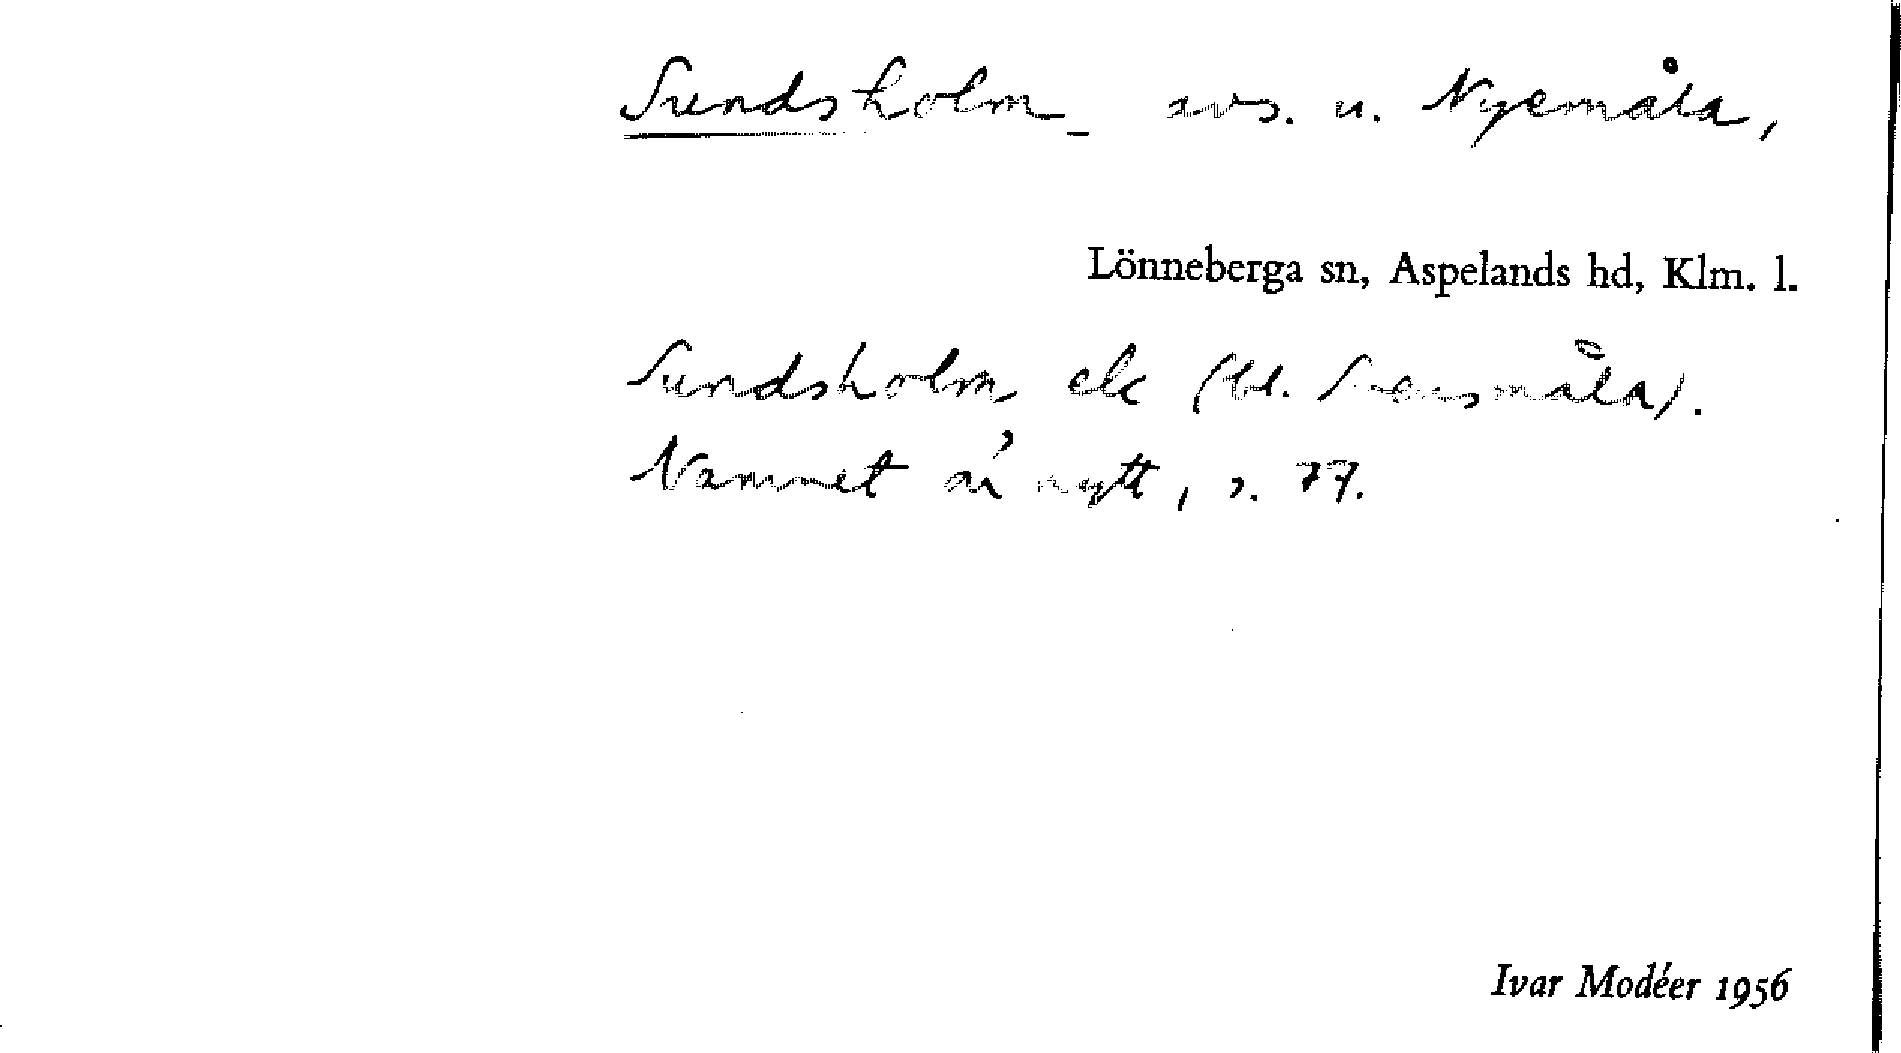 Sundsholm avs. u. Nyemåla,
Lönneberga sn, Aspelands hd, Klm. l.
Sundsholm ek (bl. Svensmåla).
Namnet är nytt, s. 77.
Ivar Modéer 1956